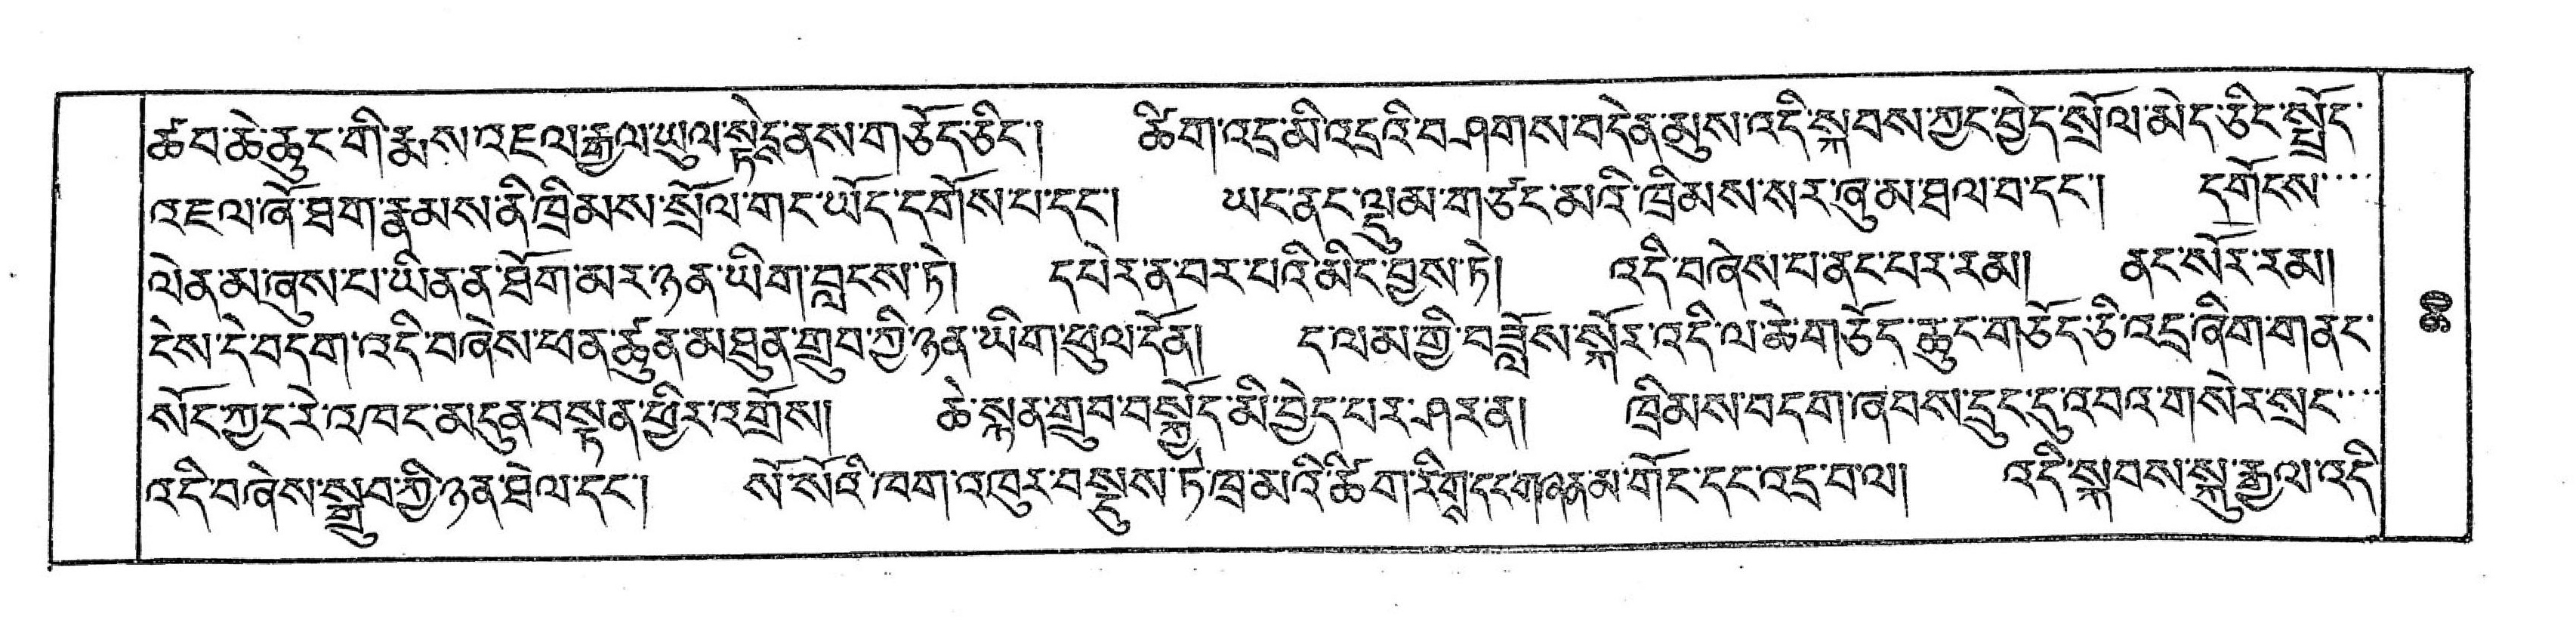 ཚབ་ཆེ་ཆུང་གི་རྣམས་འཇལ་རྒྱལ་ཡུལ་སྡེ་ནས་གཅོད་ཅིང་། ཚིག་འདྲ་མི་འདྲའི་བཤགས་བདེན་མུས་འདི་སྐབས་ཀྱང་བྱེད་སྲོལ་མེད་ཅིང་སྤྲོད་
འཇལ་ཞོ་ཐག་རྣམས་ནི་ཁྲིམས་སྲོལ་གང་ཡོད་དགོས་པ་དང་། ཡང་ནང་ལྡུམ་གཙང་མའི་ཁྲིམས་སར་ཞུམ་ཐལ་བ་དང་། དགོངས་
ལེན་མ་ཞུས་པ་ཡིན་ན་ཐོག་མར་ཉན་ཡིག་བླངས་ཏེ། དཔེར་ན་བར་པའི་མིང་བྱས་ཏེ། འདི་བཞེས་པ་ནང་པར་རམ། ནང་སོར་རམ།
ངེས་དེ་བདག་འདི་བཞེས་ཕན་ཚུན་མཐུན་གྲུབ་ཀྱི་ཉན་ཡིག་ཕུལ་དོན། ད་ལམ་གྱི་བཟློས་སྐོར་འདི་ལ་ཆེ་གཅོད་ཆུང་གཅོད་ཅི་འདྲ་ཞིག་གནང་
སོང་ཀྱང་རེ་འཁང་མདུན་བསྟན་ཕྱིར་འགྲོས། ཆེ་སྐན་གྲུབ་བསྐྱོད་མི་བྱེད་པར་ཤར་ན། ཁྲིམས་བདག་ཞབས་དྲུང་དུ་འབའ་གསེར་སྲང་
འདི་བཞེས་སྒྲུབ་ཀྱི་ཉན་ཐེལ་དང་། སོ་སོའི་ཁག་འཁུར་བསྡུས་ཏེ་ཁྲ་མའི་ཚིག་རིགྶ་དང་གཞནམ་གོང་དང་འདྲ་བ་ལ། འདི་སྐབས་སྐུ་རྒྱལ་འདི